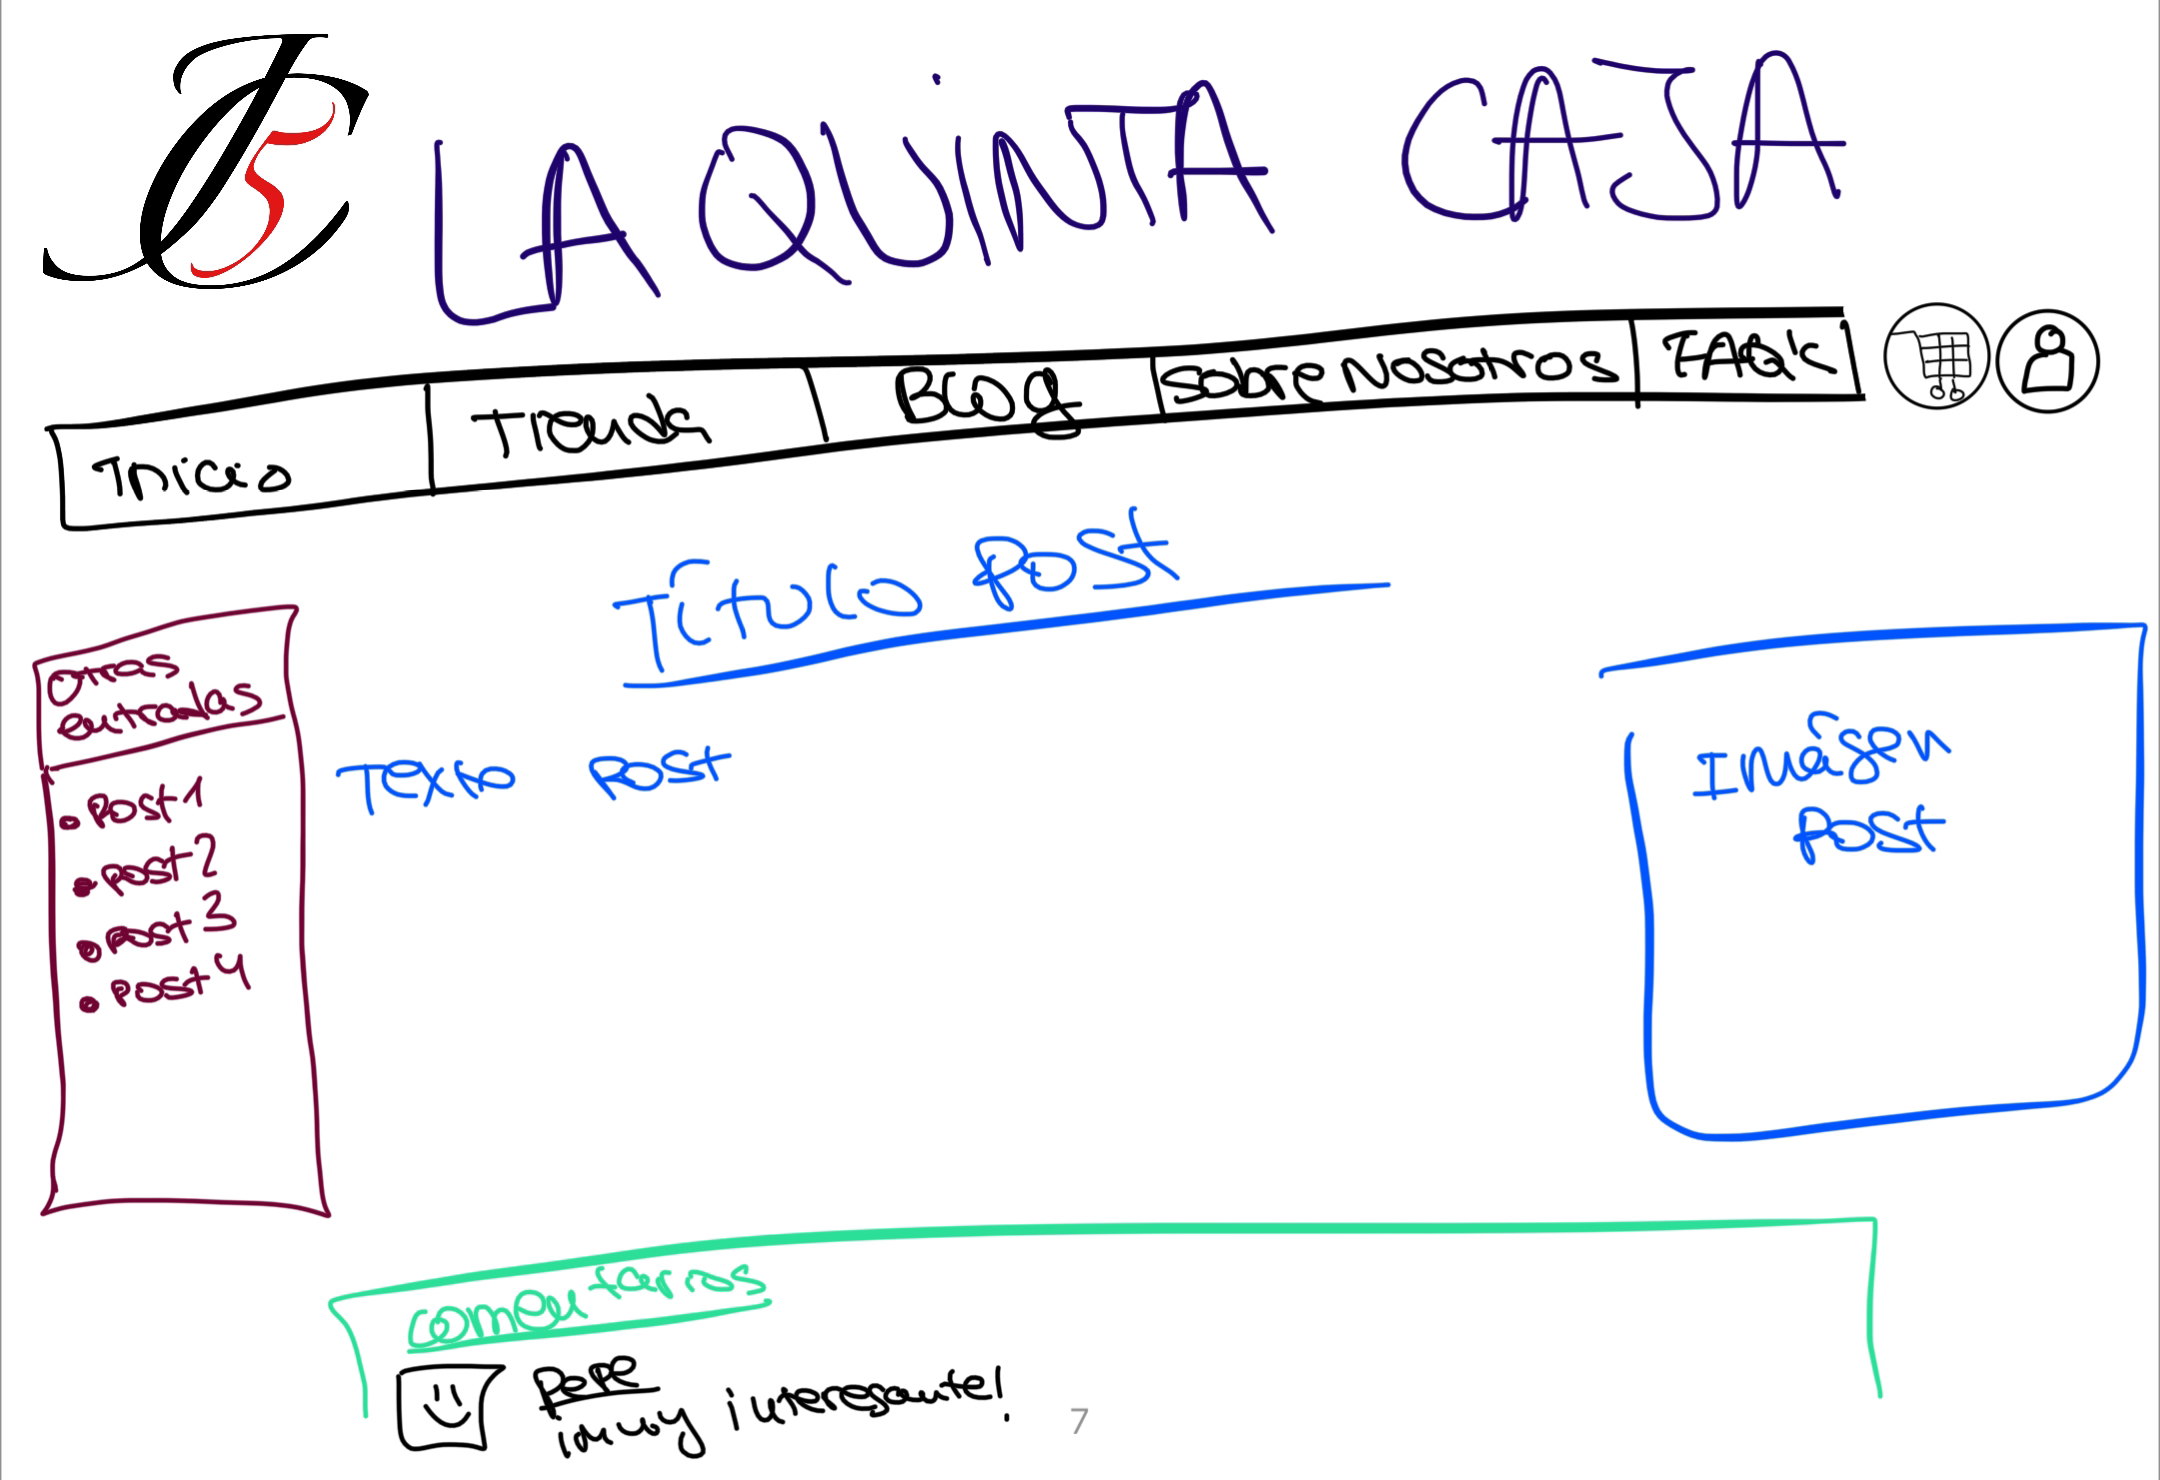 LA QUINTA CAJA
Inicio
Tienda
Blog
Sobre Nosotros
FAQ's
Título Post
Otras
entradas
Post 1
Post 2
Post 3
Post 4
Texto Post
Imágen
Post
Comentarios
Pepe
¡muy interesante!
7